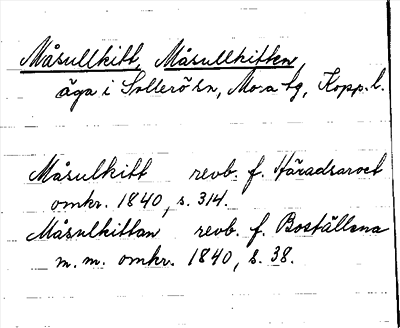 Måsullkitt, Måsullkitten,
äga i Sollerö sn, Mora tg, Kopp. l.
Måsulkitt revb. f. Häradsarvet
omkr. 1840, s. 314.
Måsulkittan revb. f. Boställena
m.m. omkr. 1840, s. 38.